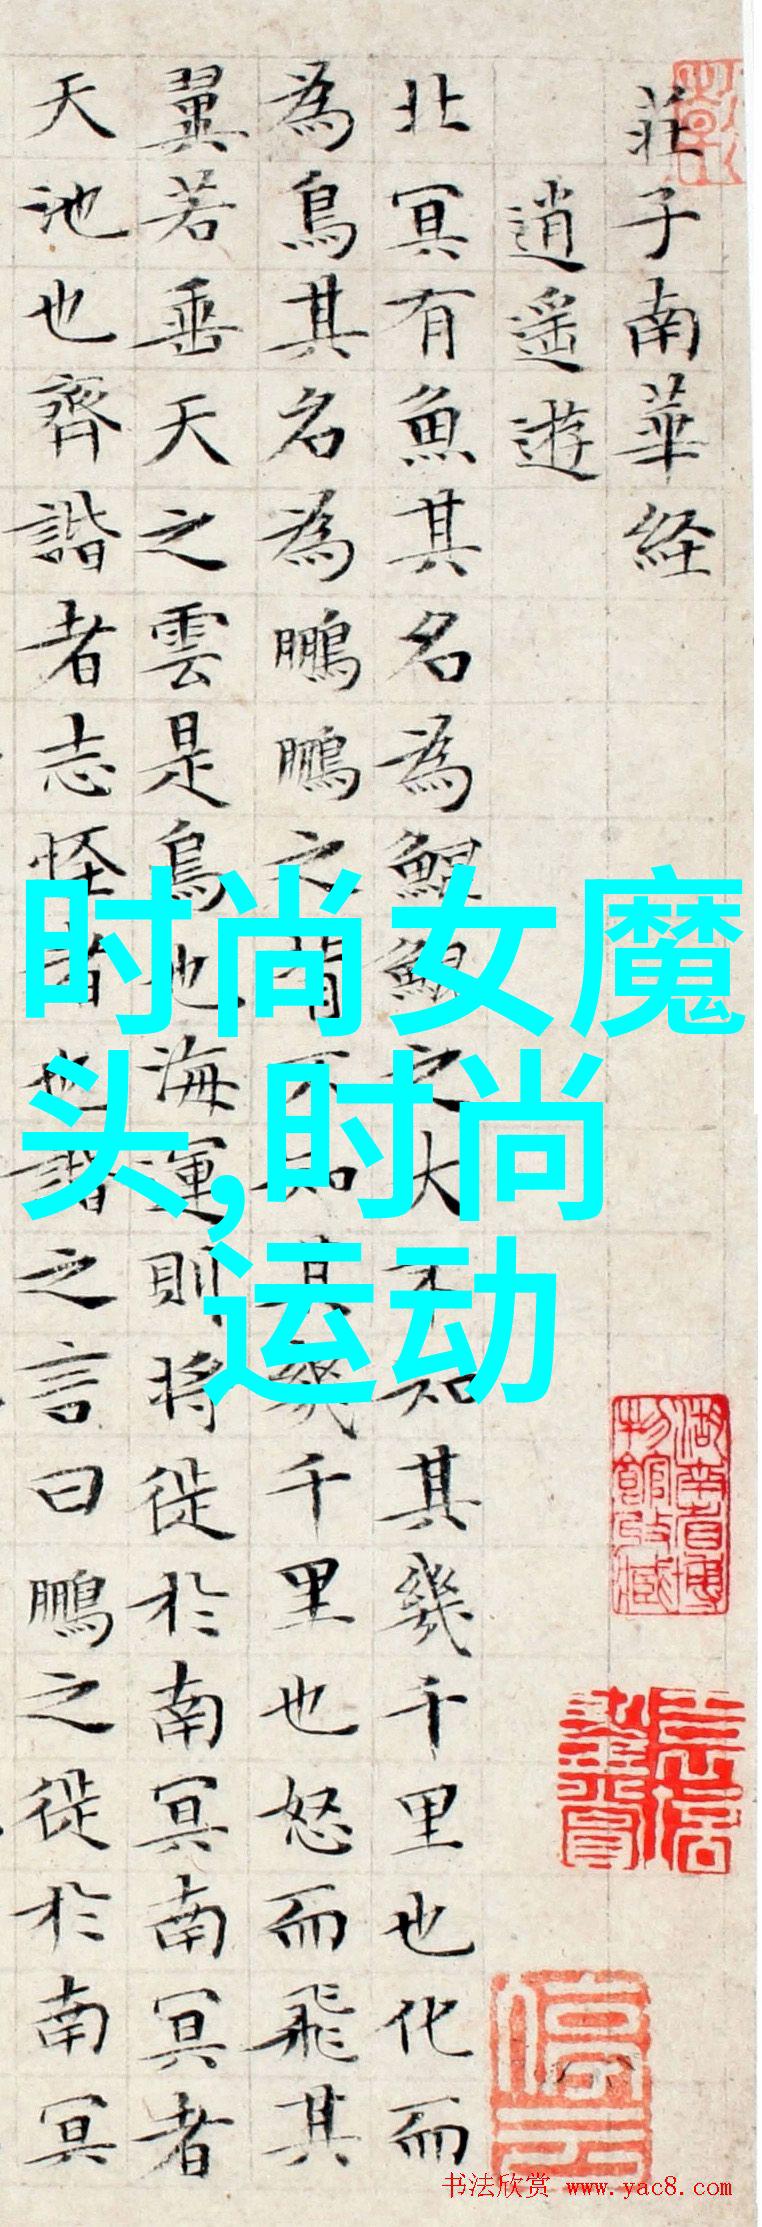 莊子南華経
逍遥遊
北冥有魚其名為鯤鯤之大不知其幾千里也化而
為鳥其名為鵬鵬之背不知其幾千里也怒而飛其
翼若垂天之雲是鳥也海運則将徙於南冥南冥者
天池也齊諧者志怪者也諧之言曰鵬之徙於南冥
时尚女魔
头,时尚
运动
湖南省博
物館收藏
书法欣赏 www.yac8.com